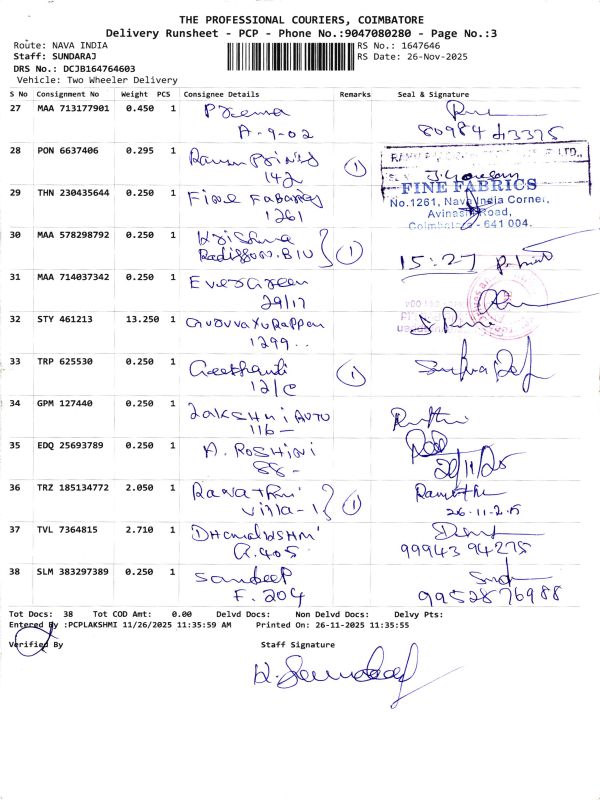 THE PROFESSIONAL COURIERS, COIMBATORE
Delivery Runsheet - PCP - Phone No.:9047080280 - Page No.:3
Route: NAVA INDIA RS No.: 1647646
Staff: SUNDARAJ RS Date: 26-Nov-2025
DRS No.: DCJB164764603
Vehicle: Two Wheeler Delivery
S No Consignment No Weight PCS Consignee Details Remarks Seal & Signature
27 MAA 713177901 0.450 1 Prema
A-9-02 80984 43375
28 PON 6637406 0.295 1 Prints 1
142
29 THN 230435644 0.250 1 Fine Fabrics FINE FABRICS
1261 No.1261, Nava India Corner,
Avinashi Road,
Coimbatore - 641 004.
30 MAA 578298792 0.250 1 Krishna
B10 1 15:27
31 MAA 714037342 0.250 1 Evergreen
29/17
32 STY 461213 13.250 1 Guruvayurappan
1299..
33 TRP 625530 0.250 1 1
12/C
34 GPM 127440 0.250 1 Lakshmi Auto
116-
35 EDQ 25693789 0.250 1 A. ROSHINI
88- 26/11/25
36 TRZ 185134772 2.050 1
Villa-1 1 26-11-25
37 TVL 7364815 2.710 1 Dhanalakshmi
A.405 99943 94275
38 SLM 383297389 0.250 1 Sandeep
F. 204 99528 76988
Tot Docs: 38 Tot COD Amt: 0.00 Delvd Docs: Non Delvd Docs: Delvy Pts:
Entered By :PCPLAKSHMI 11/26/2025 11:35:59 AM Printed On: 26-11-2025 11:35:55
Verified By Staff Signature